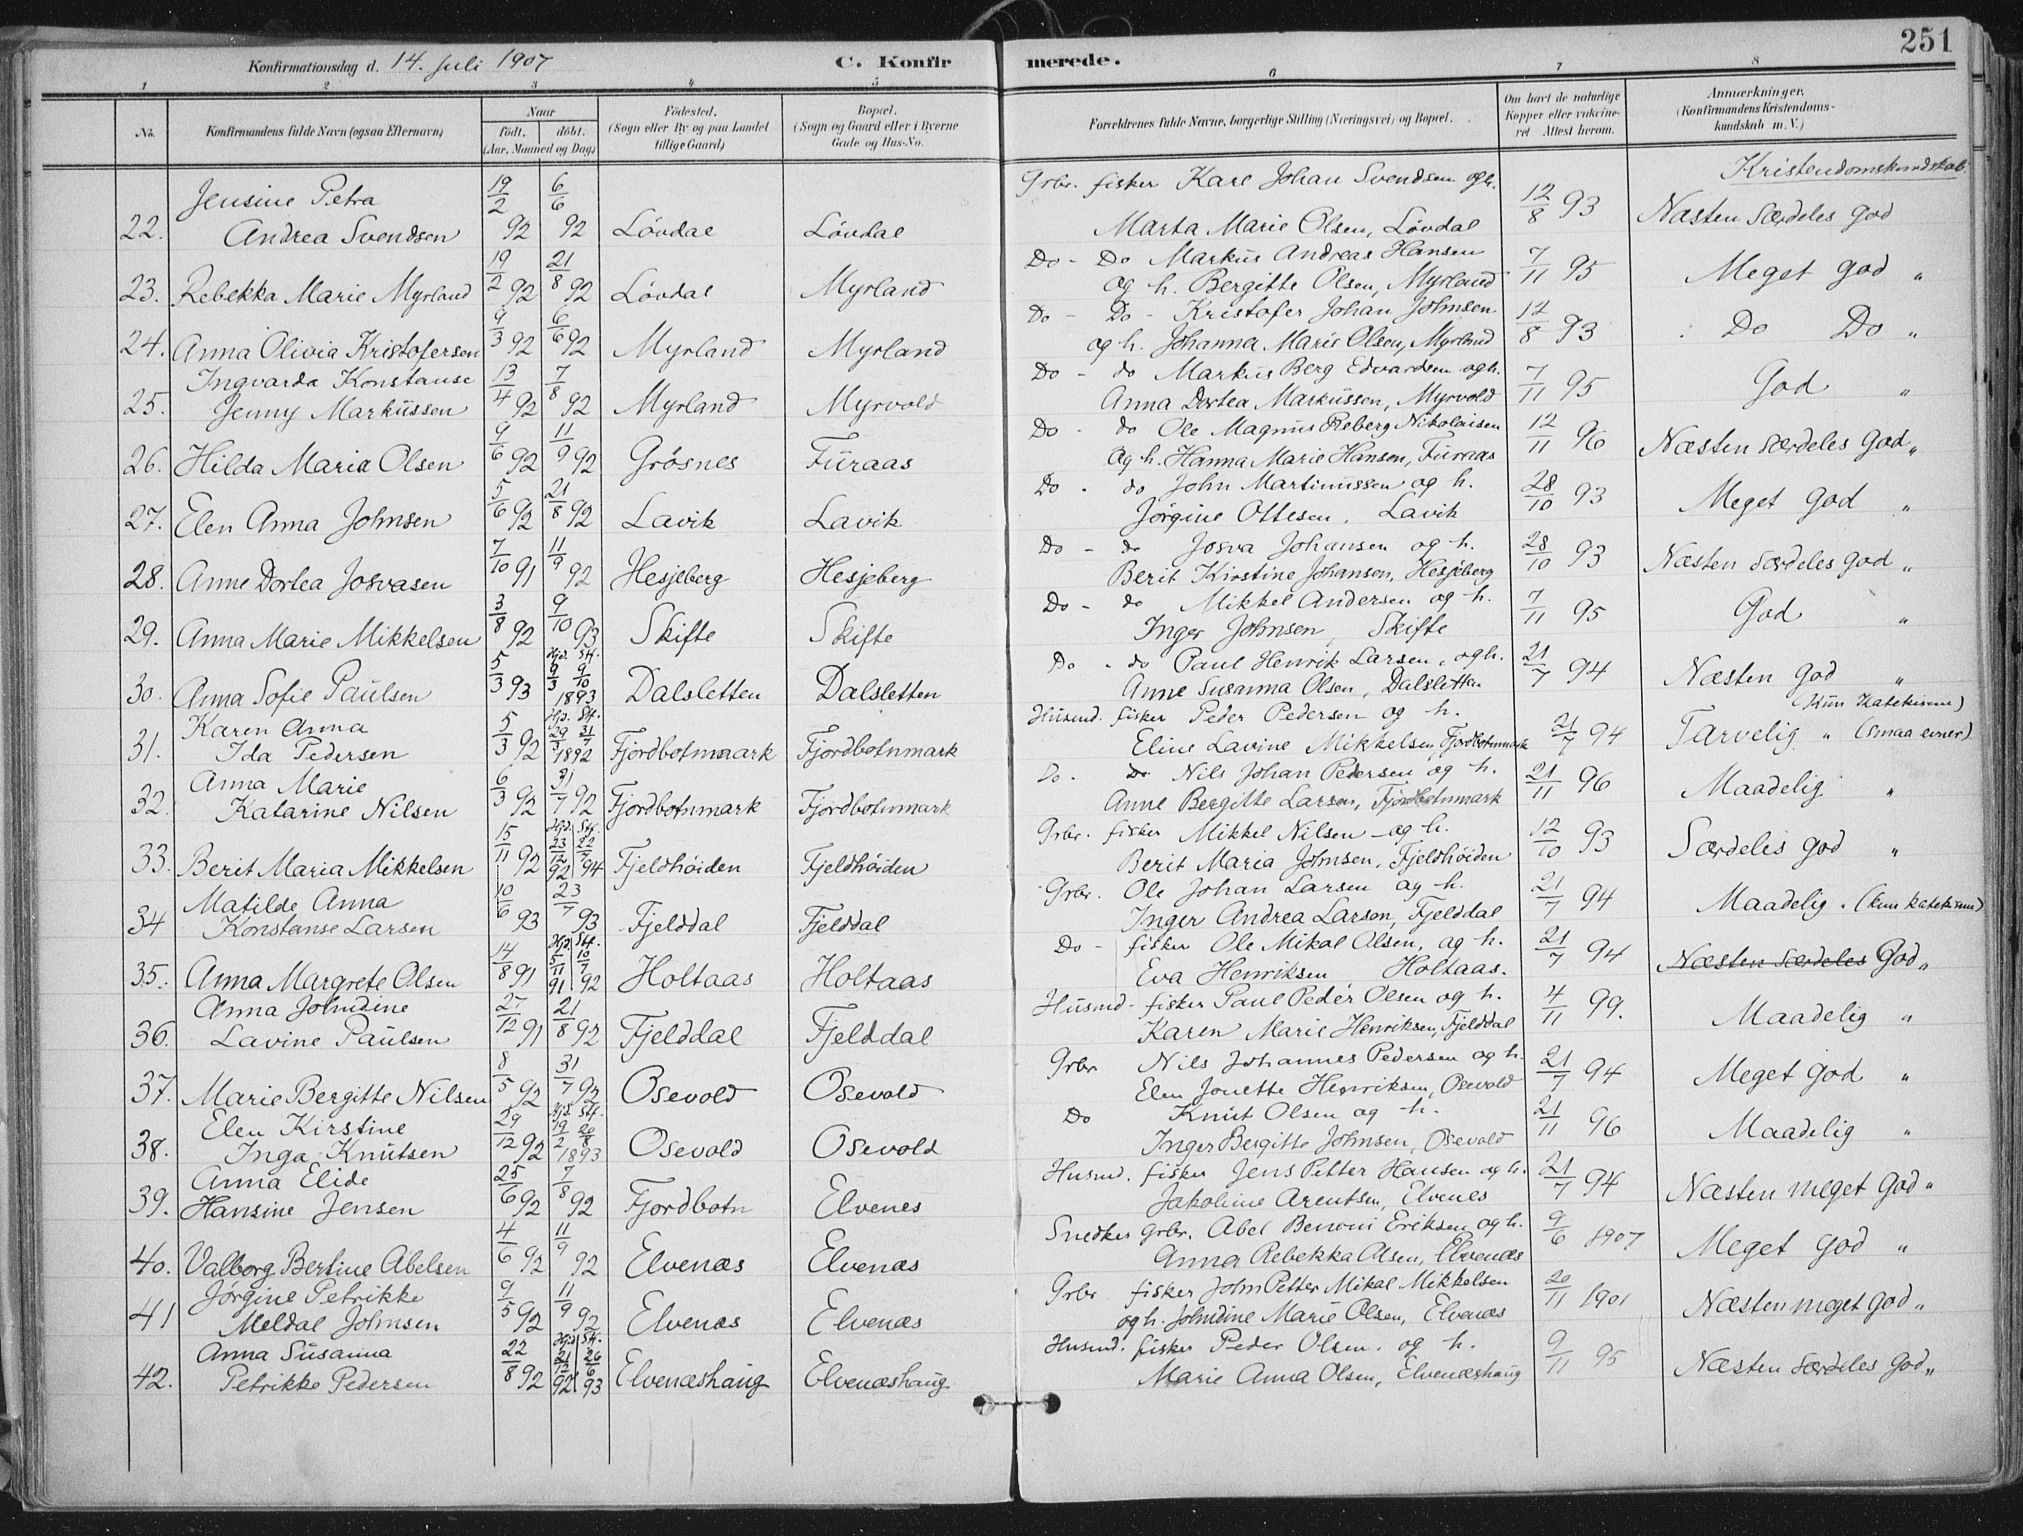 251
Konfirmationsdag d. 14. Juli 1907
C. Konfirmerede.
1 2 3 4 5 6 7 8
No.
Konfirmandens fulde Navn (ogsaa Efternavn)
Naar
født. døbt.
(Aar, Maaned og Dag)
Fødested.
(Sogn eller By og paa Landet
tillige Gaard)
Bopæl.
(Sogn og Gaard eller i Byerne
Gade og Hus-No.
Forældrenes fulde Navne, borgerlige Stilling (Næringsvei) og Bopæl.
Om havt de naturlige
Kopper eller vakcine-
ret Attest herom.
Anmærkninger.
(Konfirmandens Kristendoms-
kundskab m. V.)
Kristendomskundskab.
Jensine Petra 19/2 6/6 Grbr. fisker Karl Johan Svendsen og h. 12/8 93
22. Andrea Svendsen 92 92 Løvdal Løvdal Marta Marie Olsen, Løvdal Næsten Særdeles god
23. Rebekka Marie Myrland 19/2 92 21/8 92 Løvdal Myrland Do - Do Markus Andreas Hansen 7/11 95 Meget god "
og h. Bergitte Olsen, Myrland
24. Anna Olivia Kristofersen 9/3 92 6/6 92 Myrland Myrland Do - Do - Kristofer Johan Johnsen 12/8 93 Do Do "
og h. Johanna Marie Olsen, Myrland
Ingvarda Konstanse 13/4 7/8 Do - do Markus Berg Edvardsen og h. 7/11 95 God "
25. Jenny Markussen 92 92 Myrland Myrvold Anna Dortea Markussen, Myrvold
26. Hilda Maria Olsen 9/6 92 11/9 92 Grøsnes Furaas Do - do Ole Magnus Reberg Nikolaisen 12/11 96 Næsten særdeles god "
og h. Hanna Marie Hansen, Furaas
27. Elen Anna Johnsen 5/6 92 21/8 92 Lavik Lavik Do - do John Martinussen og h. 28/10 93 Meget god "
Jørgine Ottesen. Lavik
28. Anne Dortea Josvasen 7/10 91 11/9 92 Hesjeberg Hesjeberg Do - do Josva Johansen og h. 28/10 93 Næsten særdeles god "
Berit Kirstine Johansen, Hesjeberg
29. Anna Marie Mikkelsen 3/8 92 9/10 93 Skifte Skifte Do - do Mikkel Andersen og h. 7/11 95 God "
Inger Johnsen, Skifte
30. Anna Sofie Paulsen 5/3 93 Hjd. 9/3 Stf. 9/10 1893 Dalsletten Dalsletten Do - do Paul Henrik Larsen, og h. 21/7 94 Næsten god "
Anne Susanna Olsen, Dalsletten
Karen Anna 5/3 Hjd. 29/3 Stf. 31/7 Husmd. fisker Peder Pedersen og h. 21/7 94 (Kun Katekisme)
31. Ida Pedersen 92 1892 Fjordbotnmaark Fjordbotnmark Eline Lavine Mikkelsen, Fjordbotnmark Tarvelig " (smaa evner)
Anna Marie 6/3 31/7 Do. Do Nils Johan Pedersen og h. 21/11 96 Maadelig "
32. Katarine Nilsen 92 92 Fjordbotnmark Fjordbotnmark Anne Bergitte Larsen, Fjordbotnmark
33. Berit Maria Mikkelsen 15/11 92 Hjd. 23/12 92 Stf. 22/7 94 Fjeldhøiden Fjeldhøiden Grbr. fisker Mikkel Nilsen og h. 12/10 93 Særdeles god "
Berit Maria Johnsen, Fjeldhøiden
Matilde Anna 10/6 23/7 Grbr. Ole Johan Larsen og h. 21/7 94 Maadelig. (kun katekisme)
34 Konstanse Larsen 93 93 Fjelddal Fjelddal Inger Andrea Larsen, Fjelddal
35. Anna Margrete Olsen 14/8 91 Hjd. 5/11 91 Stf. 10/7 92 Holtaas Holtaas Do - fisker Ole Mikal Olsen, og h. 21/7 94 Næsten særdeles God "
Eva Henriksen Holtaas.
Anna Johndine 27/12 21/8 Husmd - fisker Paul Peder Olsen og h. 4/11 99. Maadelig "
36. Lavine Paulsen 91 92 Fjelddal Fjelddal Karen Marie Henriksen, Fjelddal
37. Marie Bergitte Nilsen 8/5 92 31/7 92 Osevold Osevold Grbr Nils Johannes Pedersen og h. 21/7 94 Meget god "
Elen Jonette Henriksen, Osevold
Elen Kirstine 29/12 Hjd. 19/2 Stf. 20/8 Do Knut Olsen og h. 21/11 96 Maadelig "
38. Inga Knutsen 92 1893 Osevold Osevold Inger Bergitte Johnsen, Osevold
Anna Elide 25/6 7/8 Husmd. fisker Jens Petter Hansen og h. 21/7 94 Næsten meget god "
39. Hansine Jensen 92 92 Fjordbotn Elvenes Jakoline Arentsen, Elvenes
40. Valborg Bertine Abelsen 4/6 92 11/9 92 Elvenæs Elvenæs Snedker Grbr. Abel Benoni Eriksen og h. 9/6 1907 Meget god "
Anna Rebekka Olsen, Elvenæs
Jørgine Petrikke 9/5 11/9 Grbr. fisker John Petter Mikal Mikkelsen 20/11 1901 Næsten meget god "
41 Meldal Johnsen 92 92 Elvenæs Elvenæs og h. Johndine Marie Olsen, Elvenæs
Anna Susanna 22/8 Hjd. 21/12 Stf. 26/6 Husmd. fisker Peder Olsen. og h. 9/11 95 Næsten særdeles god "
42. Petrikke Pedersen 92 92 93 Elvenæshaug Elvenæshaug Marie Anna Olsen, Elvenæshaug